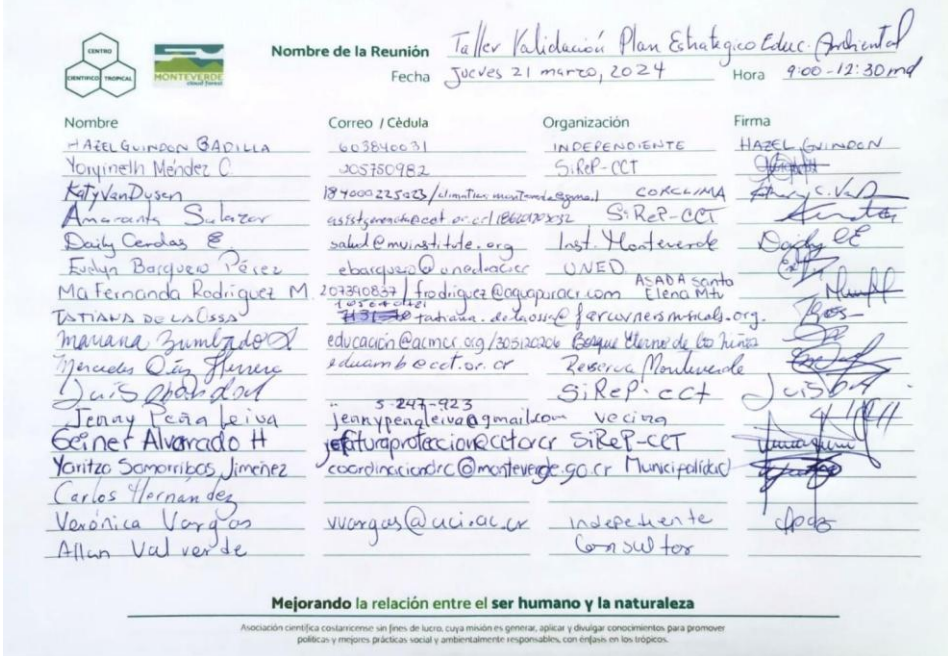 CENTRO
CIENTIFICO TROPICAL
MONTEVERDE
cloud forest
Nombre de la Reunión Taller Validación Plan Estrategico Educ. Ambiental
Fecha Jueves 21 marzo, 2024 Hora 9:00-12:30 md
Nombre Correo / Cédula Organización Firma
HAZEL GUINDON BADILLA 603840031 INDEPENDIENTE HAZEL GUINDON
Méndez C. 205750982 SiReP-CCT
Katy VanDusen CORCLIMA
Amaranta Salazar SiReP-CCT
Daily Cerdas E. salud@mvinstitute.org Inst. Monteverde Daily CE
Evelyn Barquero Pérez UNED
Ma Fernanda Rodríguez M. 207340837 / frodriguez@aguapuracr.com ASADA Santa Elena Mtv
TATIANA DE LA OSSA
Mariana Zumbado educación@acmcr.org/305120206 Bosque Eterno de los Niños
Mercedes Díaz Herrera eduamb@cct.or.cr Reserva Monteverde
Luis SiReP-cct
5-247-923
Jenny Peña Leiva jennypenaleiva@gmail.com vecina
Geiner Alvarado H SiReP-CCT
Yaritza Samorribas Jimenez @monteverde.go.cr Municipalidad
Carlos Hernandez
Verónica Vargas vvargas@uci.ac.cr Indepediente
Allan Valverde Consultor
Mejorando la relación entre el ser humano y la naturaleza
Asociación científica costarricense sin fines de lucro, cuya misión es generar, aplicar y divulgar conocimientos para promover
políticas y mejores prácticas social y ambientalmente responsables, con énfasis en los trópicos.